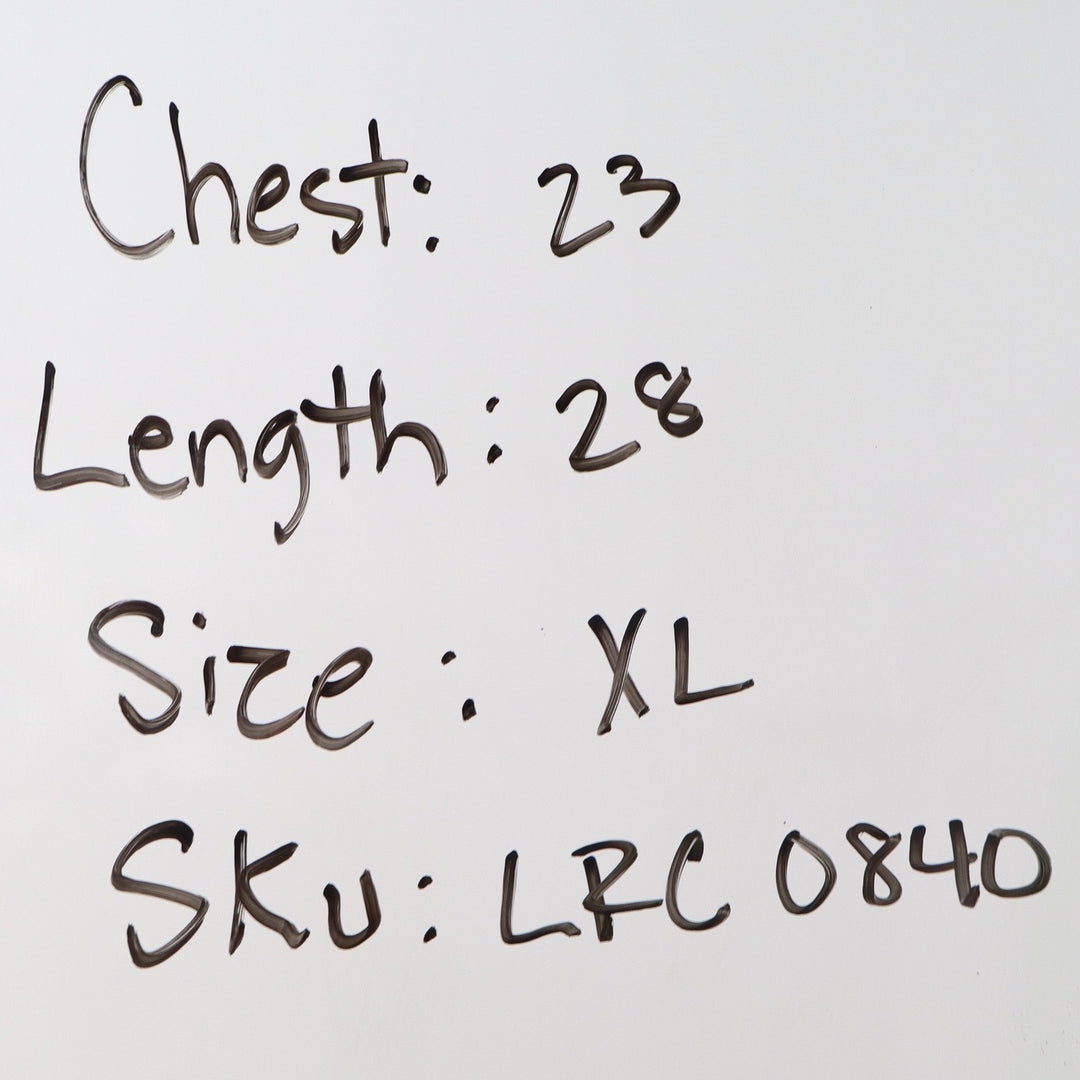 Chest: 23
Length: 28
Size: XL
SKu: LRC 0840